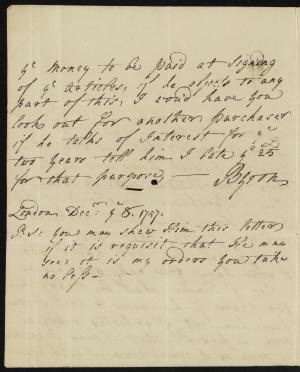 ye money to be paid at signing
of ye Articles, if he objects to any
part of this, I woud have you
look out for another purchaser
if he talks of Interest for ye
two years tell him I take ye
for that purpose —
London Decr: ye 8. 1747.
P.S: you may shew Him this letter
if it is requisit that He may
see it is my orders you take
no less —